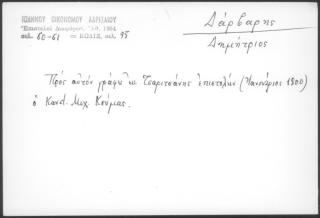 ΙΩΑΝΝΟΥ ΟΙΚΟΝΟΜΟΥ ΛΑΡΙΣΑΙΟΥ
Ἐπιστολαὶ Διαφόρων, Ἀθ. 1964
σελ. 60-61 σελ. 95
Δάρβαρης
Δημήτριος
Πρὸς αὐτὸν γράφει ἐκ Τσαριτσάνης ἐπιστολὴν (Ἰανουάριος 1800)
ὁ Κωνσ. Μιχ. Κούμας.